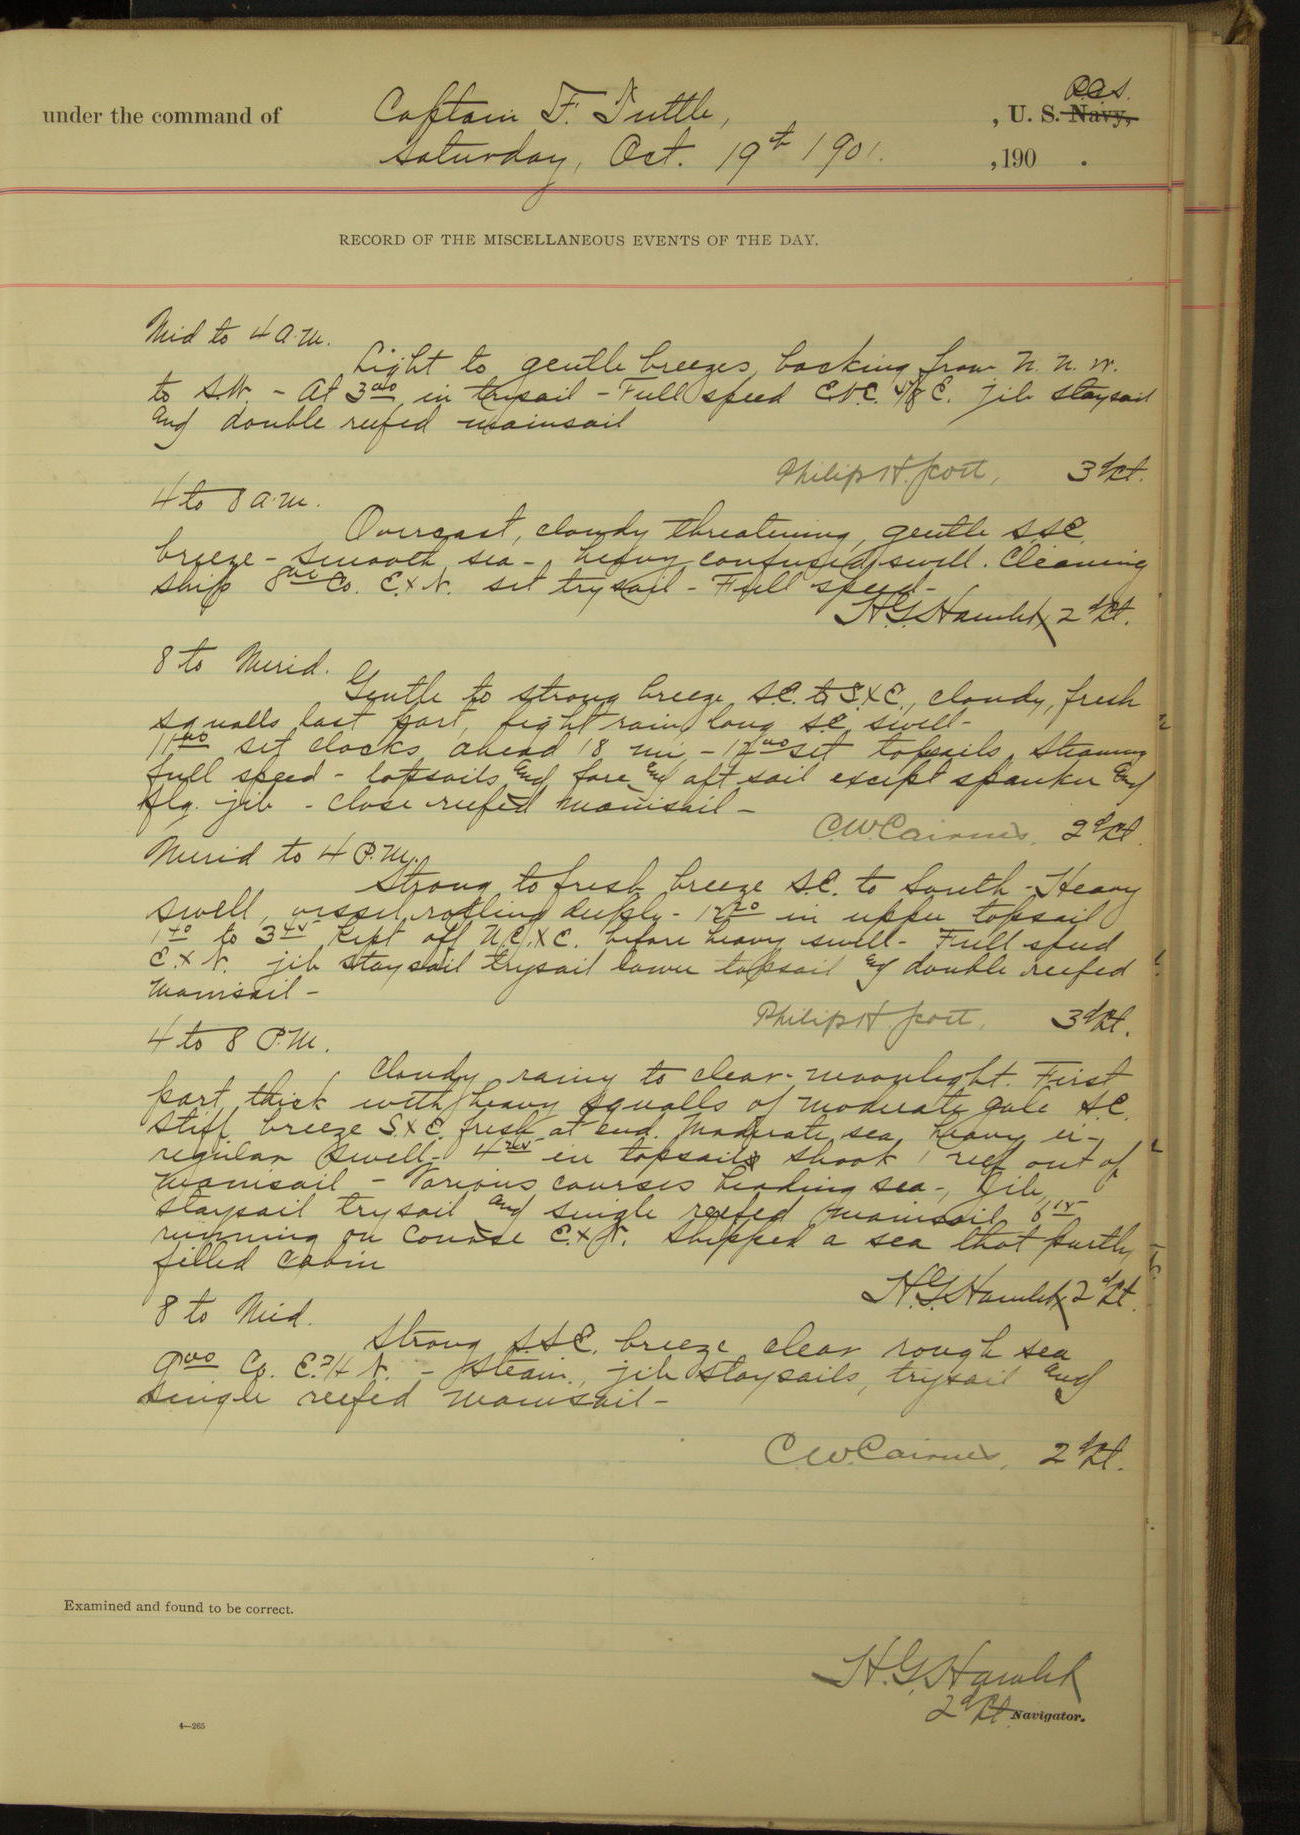 R.C.S.
under the command of Captain F. Tuttle, , U. S. Navy,
Saturday, Oct. 19th 1901. , 190 .
RECORD OF THE MISCELLANEOUS EVENTS OF THE DAY.
Mid to 4 A.M.
Light to gentle breezes, backing from N. N. W.
to SW. - At 3 00 in trysail - Full speed E.N.E. 5/8 E. jib staysail
and double reefed mainsail
Philip H. Scott, 3d Lt.
4 to 8 A.M.
Overcast, cloudy threatening, gentle SSE
breeze - smooth sea -, heavy confused swell. Cleaning
ship 8 00 Co. E x N. set trysail - Full speed -
H.G. Hamlet 2d Lt.
8 to Merid.
Gentle to strong breeze S.E. to S x E., cloudy, fresh
squalls last part, light rain, long S.E. swell -
11 00 set clocks ahead 18 min - 12 00 set topsails, Steaming
full speed - topsails and fore and aft sail except spanker and
flg. jib - close reefed mainsail -
C.W. Cairnes, 2d Lt.
Merid to 4 P.M.
Strong to fresh breeze S.E. to South - Heavy
swell, vessel rolling deeply - 12 20 in upper topsail
1 40 to 3 45 kept off N.E. x E. before heavy swell - Full speed
E. x N. jib staysail trysail lower topsail and double reefed
mainsail -
Philip H Scott, 3d Lt.
4 to 8 P.M.
Cloudy, rainy to clear - moonlight. First
part thick with heavy squalls of moderate gale S.E.
Stiff breeze S x E. fresh at end. Moderate sea, heavy ir-
regular swell - 4 25 in topsails shook 1 reef out of
mainsail - Various courses heading sea -, jib,
staysail trysail and single reefed mainsail, 6 15
running on Course E. x N. Shipped a sea that partly
filled cabin
H.G. Hamlet 2d Lt.
8 to Mid.
Strong SSE. breeze clear rough sea
9 00 Co. E. 3/4 N. - Steam, jib staysails, trysail and
single reefed mainsail -
C.W. Cairnes, 2d Lt.
Examined and found to be correct.
H.G. Hamlet
2d Lt. Navigator.
4—265